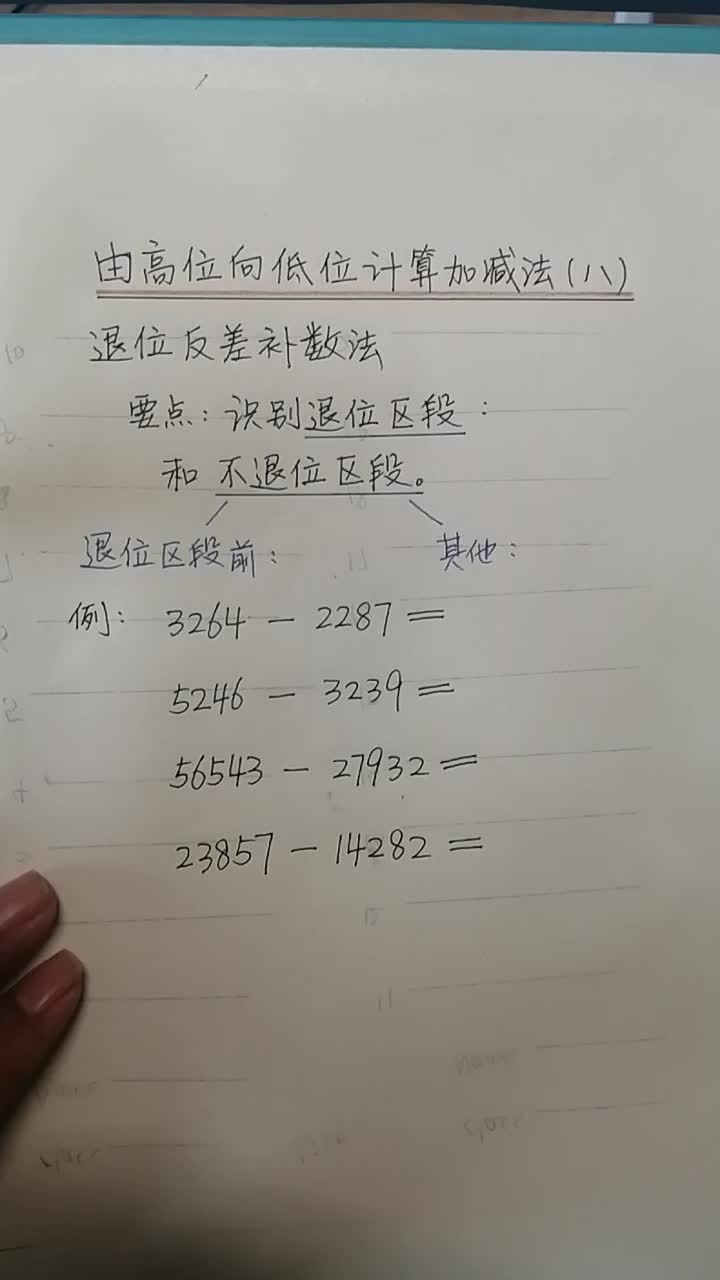 由高位向低位计算加减法(八)
退位反差补数法
要点:识别退位区段:
和不退位区段。
退位区段前: 其他:
例: 3264 - 2287 =
5246 - 3239 =
56543 - 27932 =
23857 - 14282 =